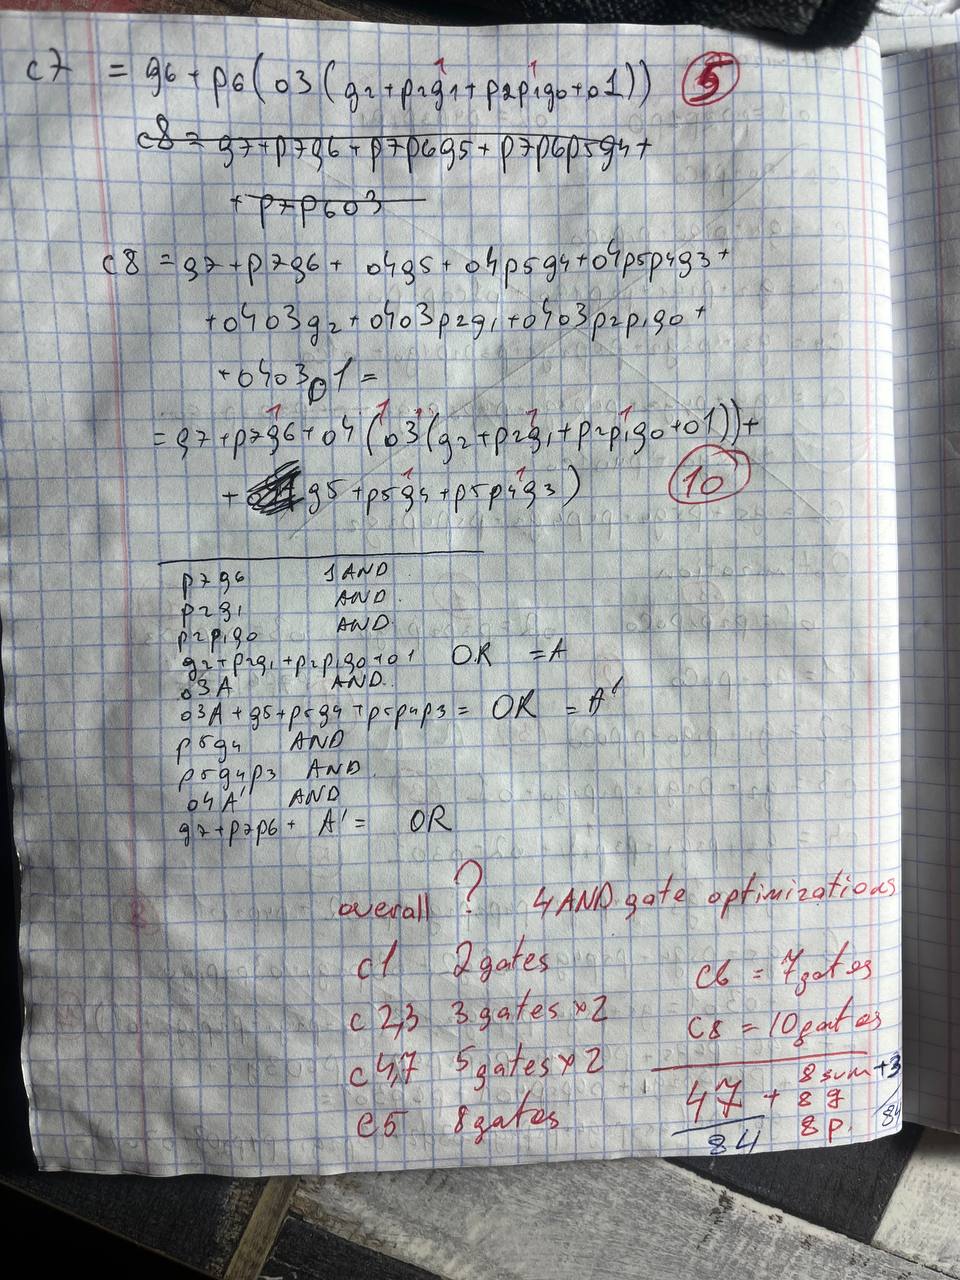 c7 = g6 + p6(o3(g2+p2g1+p2p1g0+o1)) 5
c8 = g7+p7g6+p7p6g5+p7p6p5g4+
+p7p6o3
c8 = g7+p7g6+ o4g5+o4p5g4+o4p5p4g3+
+o4o3g2+o4o3p2g1+o4o3p2p1g0+
+o4o3o1=
=g7+p7g6+o4(o3(g2+p2g1+p2p1g0+o1))+
+ g5+p5g4+p5p4g3) 10
p7g6 1 AND
p2g1 AND
p2p1g0 AND
g2+p2g1+p2p1g0+o1 OR =A
o3A AND
o3A+g5+p5g4+p5p4p3= OR =A'
p5g4 AND
p5g4p3 AND
o4A' AND
g7+p7p6+ A'= OR
overall ? 4 AND gate optimizations
c1 2 gates
c2,3 3 gates x2
c4,7 5 gates x2
c5 8 gates
c6 = 7 gates
c8 = 10 gates
47 + 8 sum +3
8 g
8 p
84